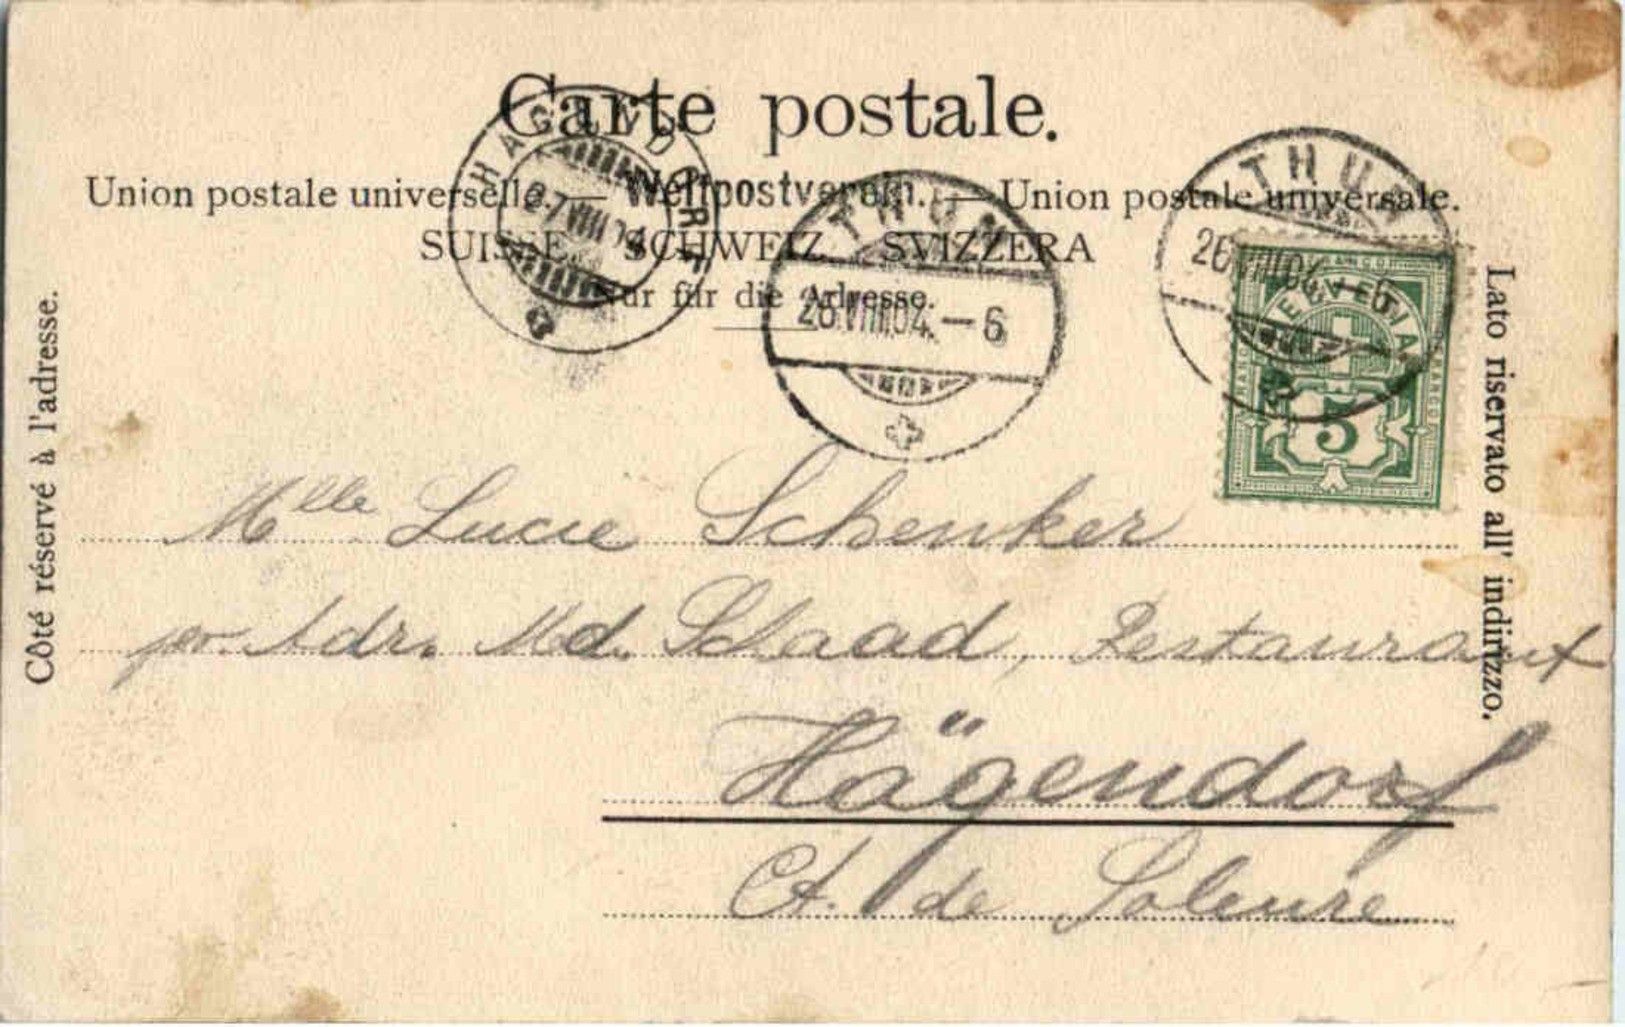 Carte postale.
Union postale universelle. — Weltpostverein. — Union postale universale.
SUISSE. SCHWEIZ. SVIZZERA
Nur für die Adresse.
Côté réservé à l'adresse.
Lato riservato all' indirizzo.
HÄGENDORF
27.VIII.04
THUN
26.VIII.04.–6
THUN
26.VIII.04.–6
HELVETIA
FRANCO
FRANCO
FRANCO
5
Mlle Lucie Schenker
per Adr. Md. Schaad, Restaurant
Hägendorf
Ct. de Soleure